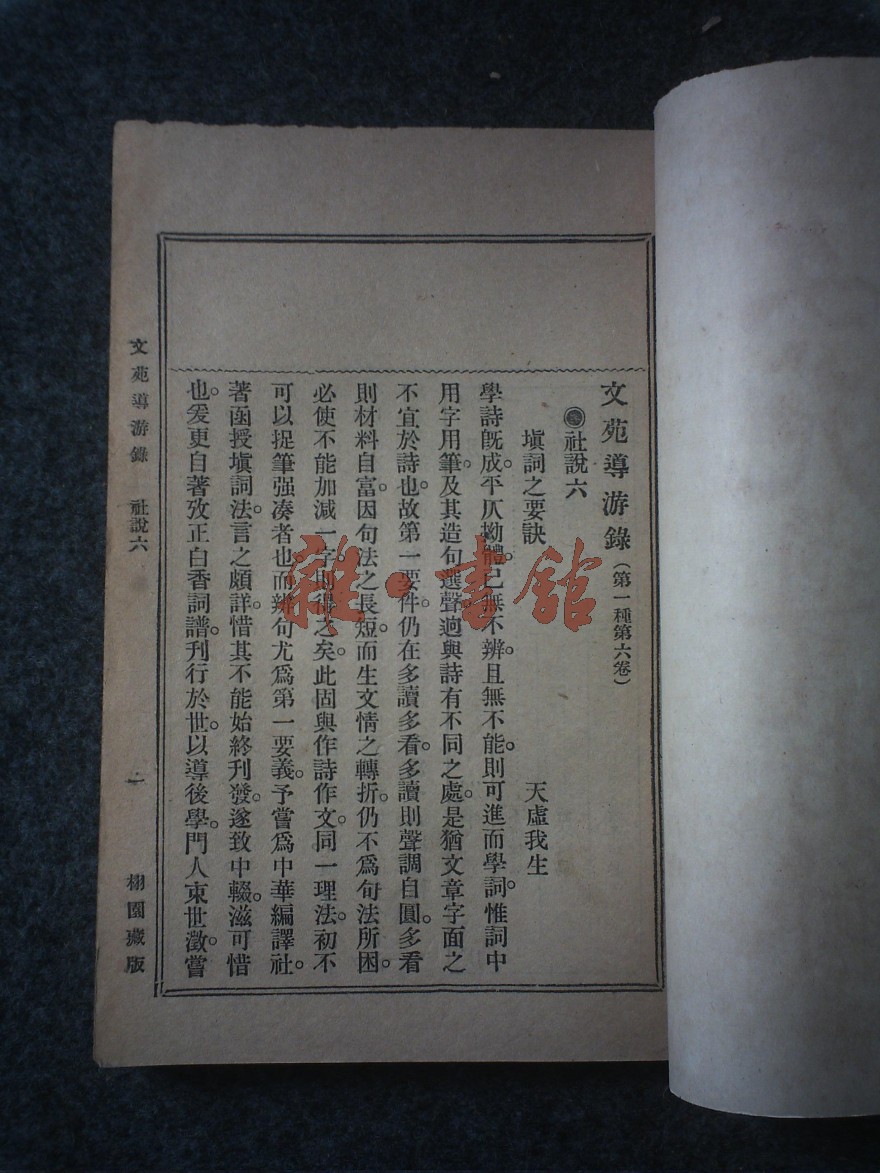 文苑導游錄（第一種第六卷）
社說六
塡詞之要訣　天虛我生
學詩旣成。平仄拗體。已無不辨。且無不能。則可進而學詞。惟詞中
用字用筆。及其造句選聲。迥與詩有不同之處。是猶文章字面之
不宜於詩也。故第一要件。仍在多讀多看。多讀則聲調自圓。多看
則材料自富。因句法之長短。而生文情之轉折。仍不爲句法所困。
必使不能加減一字。則得之矣。此固與作詩作文。同一理法。初不
可以捉筆强凑者也。而辨句尤爲第一要義。予嘗爲中華編譯社。
著函授塡詞法。言之頗詳。惜其不能始終刊發。遂致中輟。滋可惜
也。爰更自著攷正白香詞譜。刊行於世。以導後學。門人束世澂。嘗
文苑導游錄　社說六　一　栩園藏版
雜·書館